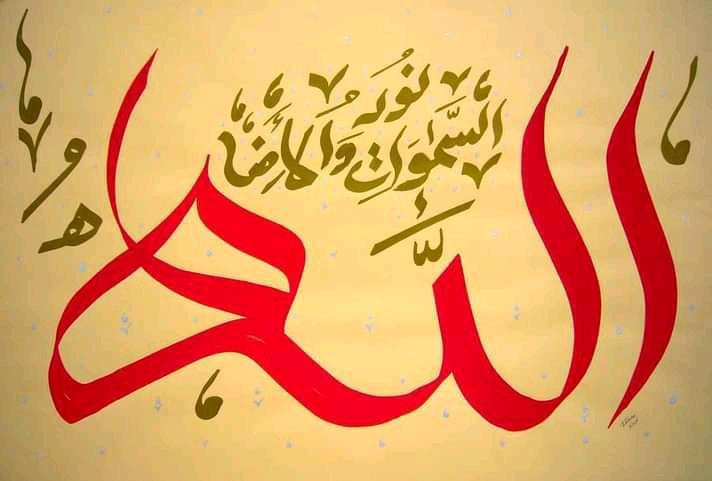 الله
نُورُ
السَّمٰوَاتِ وَالأَرض